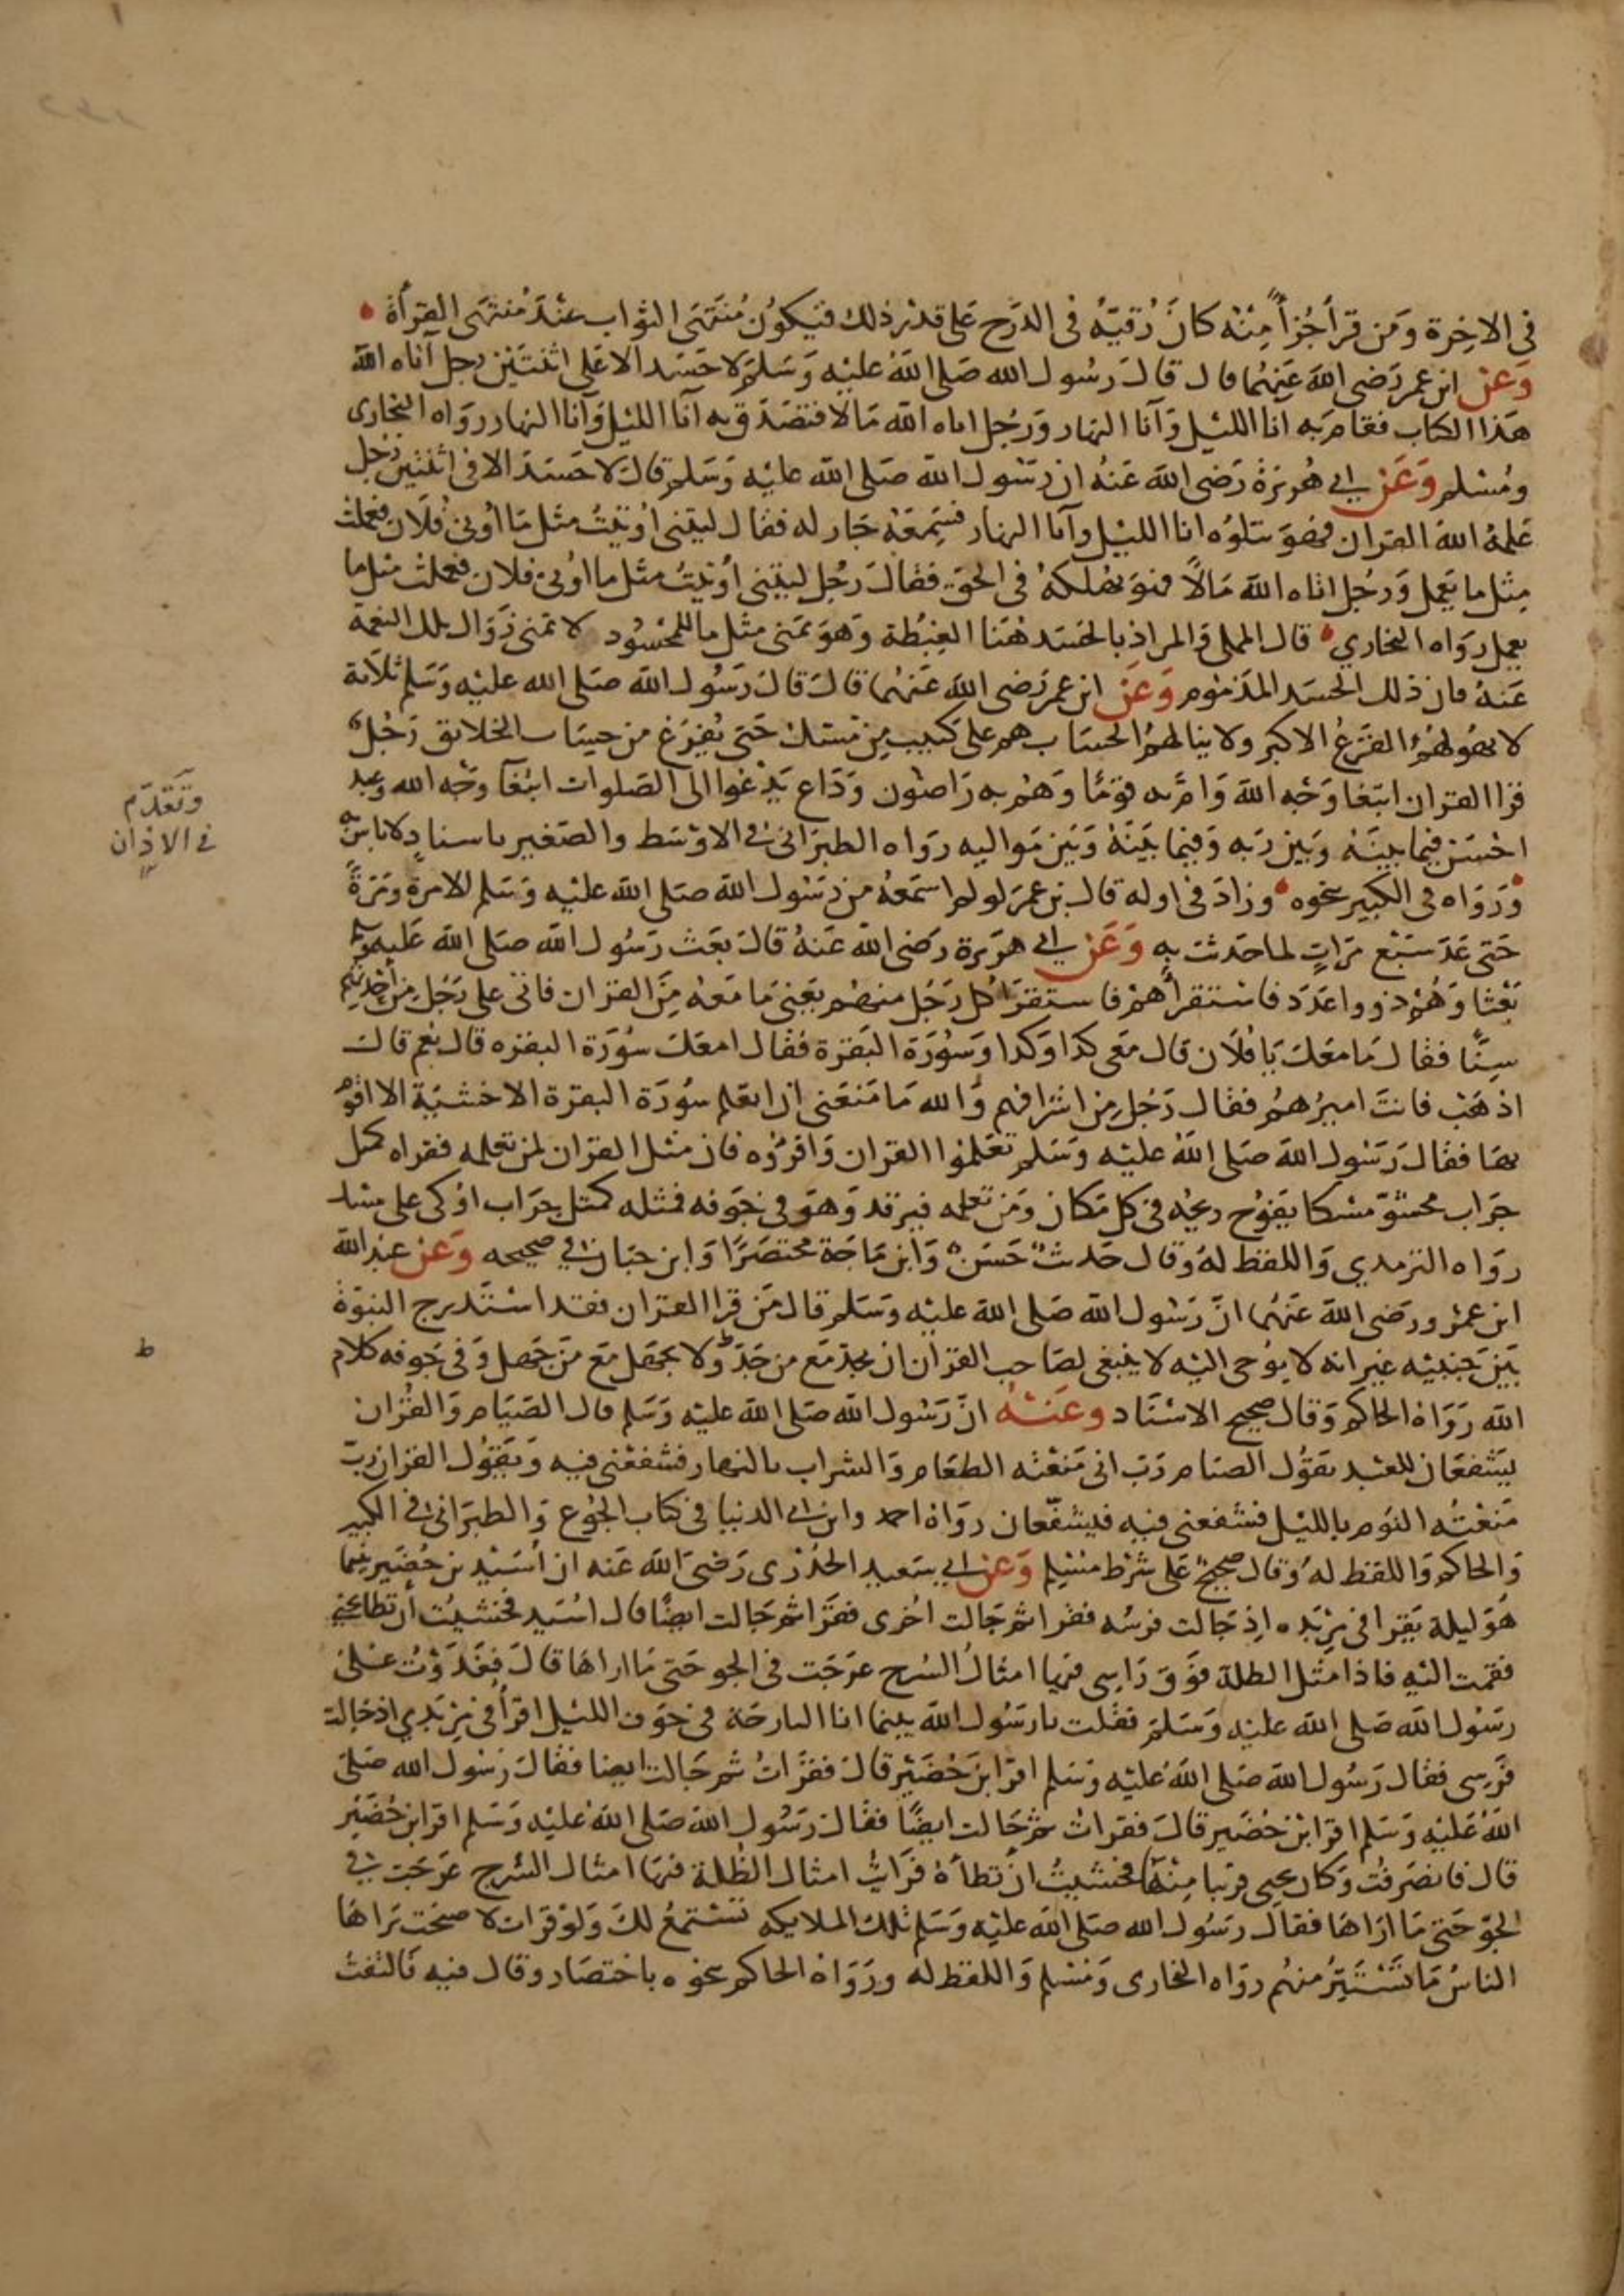 في الاخرة ومن قرأ جُزأً منه كان رُقيّه في الدرج على قدر ذلك فيكون منتهى الثواب عند منتهى القرأة
وعن ابن عمر رضي الله عنهما قال قال رسول الله صلى الله عليه وسلم لا حسد الا على اثنتين رجل آتاه الله
هذا الكتاب فقام به انا الليل وآنا النهار ورجل اتاه الله مالا فتصدق به آنا الليل وآنا النهار رواه البخارى
ومسلم وعن ابي هريرة رضي الله عنه ان رسول الله صلى الله عليه وسلم قال لا حسد الا في اثنتين رجل
علمه الله القران فهو يتلوه انا الليل وآنا النهار فسمعه جار له فقال ليتني أوتيت مثل ما اوتي فلان فعملت
مثل ما يعمل ورجل اتاه الله مالاً فهو يهلكه في الحق فقال رجل ليتني أوتيت مثل ما اوتي فلان فعملت مثل ما
يعمل رواه البخاري قال المملي والمراد بالحسد هنا الغبطة وهو تمنى مثل ما للمحسود لا تمنى زوال تلك النعمة
عنه فان ذلك الحسد المذموم وعن ابن عمر رضي الله عنهما قال قال رسول الله صلى الله عليه وسلم ثلاثة
لا يهولهم الفزع الاكبر ولا ينالهم الحساب هم على كثيب من مسك حتى يفرغ من حساب الخلائق رجل
قرا القران ابتغا وجه الله وام به قوما وهم به راضون وداع يدعوا الى الصلوات ابتغآ وجه الله وعبد
احسن فيما بينه وبين ربه وفيما بينه وبين مواليه رواه الطبراني في الاوسط والصغير باسناد لا باس به
ورواه في الكبير بنحوه وزاد في اوله قال بن عمر لو لم اسمعه من رسول الله صلى الله عليه وسلم الا مرة ومرة
حتى عد سبع مرات لما حدثت به وعن ابي هريرة رضي الله عنه قال بعث رسول الله صلى الله عليه وسلم
بعثا وهم ذووا عدد فاستقرأهم فاستقرا كل رجل منهم يعني ما معه من القران فاتى على رجل من أحدثهم
سنًا فقال ما معك يا فلان قال معي كذا وكذا وسورة البقرة فقال امعك سورة البقره قال نعم قال
اذهب فانت اميرهم فقال رجل من اشرافهم والله ما منعنى ان اتعلم سورة البقرة الا خشية الا اقوم
بها فقال رسول الله صلى الله عليه وسلم تعلموا القران واقرؤه فان مثل القران لمن تعلمه فقراه كمثل
جراب محشو مسكا يفوح ريحه في كل مكان ومن تعلمه فيرقد وهو في جوفه فمثله كمثل جراب اوكى على مسك
رواه الترمدي واللفظ له وقال حديث حسن وابن ماجة مختصرًا وابن حبان في صحيحه وعن عبد الله
ابن عمرو رضي الله عنهما انّ رسول الله صلى الله عليه وسلم قال من قرا القران فقد استدرج النبوة
بين جنبيه غير انه لا يوحى اليه لا ينبغي لصاحب القرآن ان يجد مع من جد ولا يجهل مع من جهل وفي جوفه كلام
الله رواه الحاكم وقال صحيح الاسناد وعنه انّ رسول الله صلى الله عليه وسلم قال الصيام والقران
يشفعان للعبد يقول الصيام رب اني منعته الطعام والشراب بالنهار فشفعني فيه ويقول القران رب
منعته النوم بالليل فشفعني فيه فيشفعان رواه احمد وابن ابي الدنيا في كتاب الجوع والطبراني في الكبير
والحاكم واللفظ له وقال صحيح على شرط مسلم وعن ابي سعيد الخدرى رضي الله عنه ان أسيد بن حضير بينما
هو ليلة يقرا في مربده اذ جالت فرسه فقرا ثم جالت اخرى فقرا ثم جالت ايضًا قال اسيد فخشيت أن تطا يحيى
فقمت اليه فاذا مثل الظلة فوق راسي فيها امثال السرج عرجت في الجو حتى ما اراها قال فغدوت على
رسول الله صلى الله عليه وسلم فقلت يا رسول الله بينما انا البارحة في جوف الليل اقرأ في مربدي اذ جالت
فرسى فقال رسول الله صلى الله عليه وسلم اقرا ابن حضير قال فقرات ثم جالت ايضا فقال رسول الله صلى
الله عليه وسلم اقرا ابن حضير قال فقرات ثم جالت ايضًا فقال رسول الله صلى الله عليه وسلم اقرا ابن حضير
قال فانصرفت وكان يحيى قريبا منها فخشيت ان تطأه فرايت امثال الظلة فيها امثال السرج عرجت في
الجو حتى ما اراها فقال رسول الله صلى الله عليه وسلم تلك الملايكه تستمع لك ولو قرات لاصبحت يراها
الناس ما تستتر منهم رواه البخارى ومسلم واللفظ له ورواه الحاكم بنحوه باختصار وقال فيه فالتفت
وتقدم
في الاذان
ط